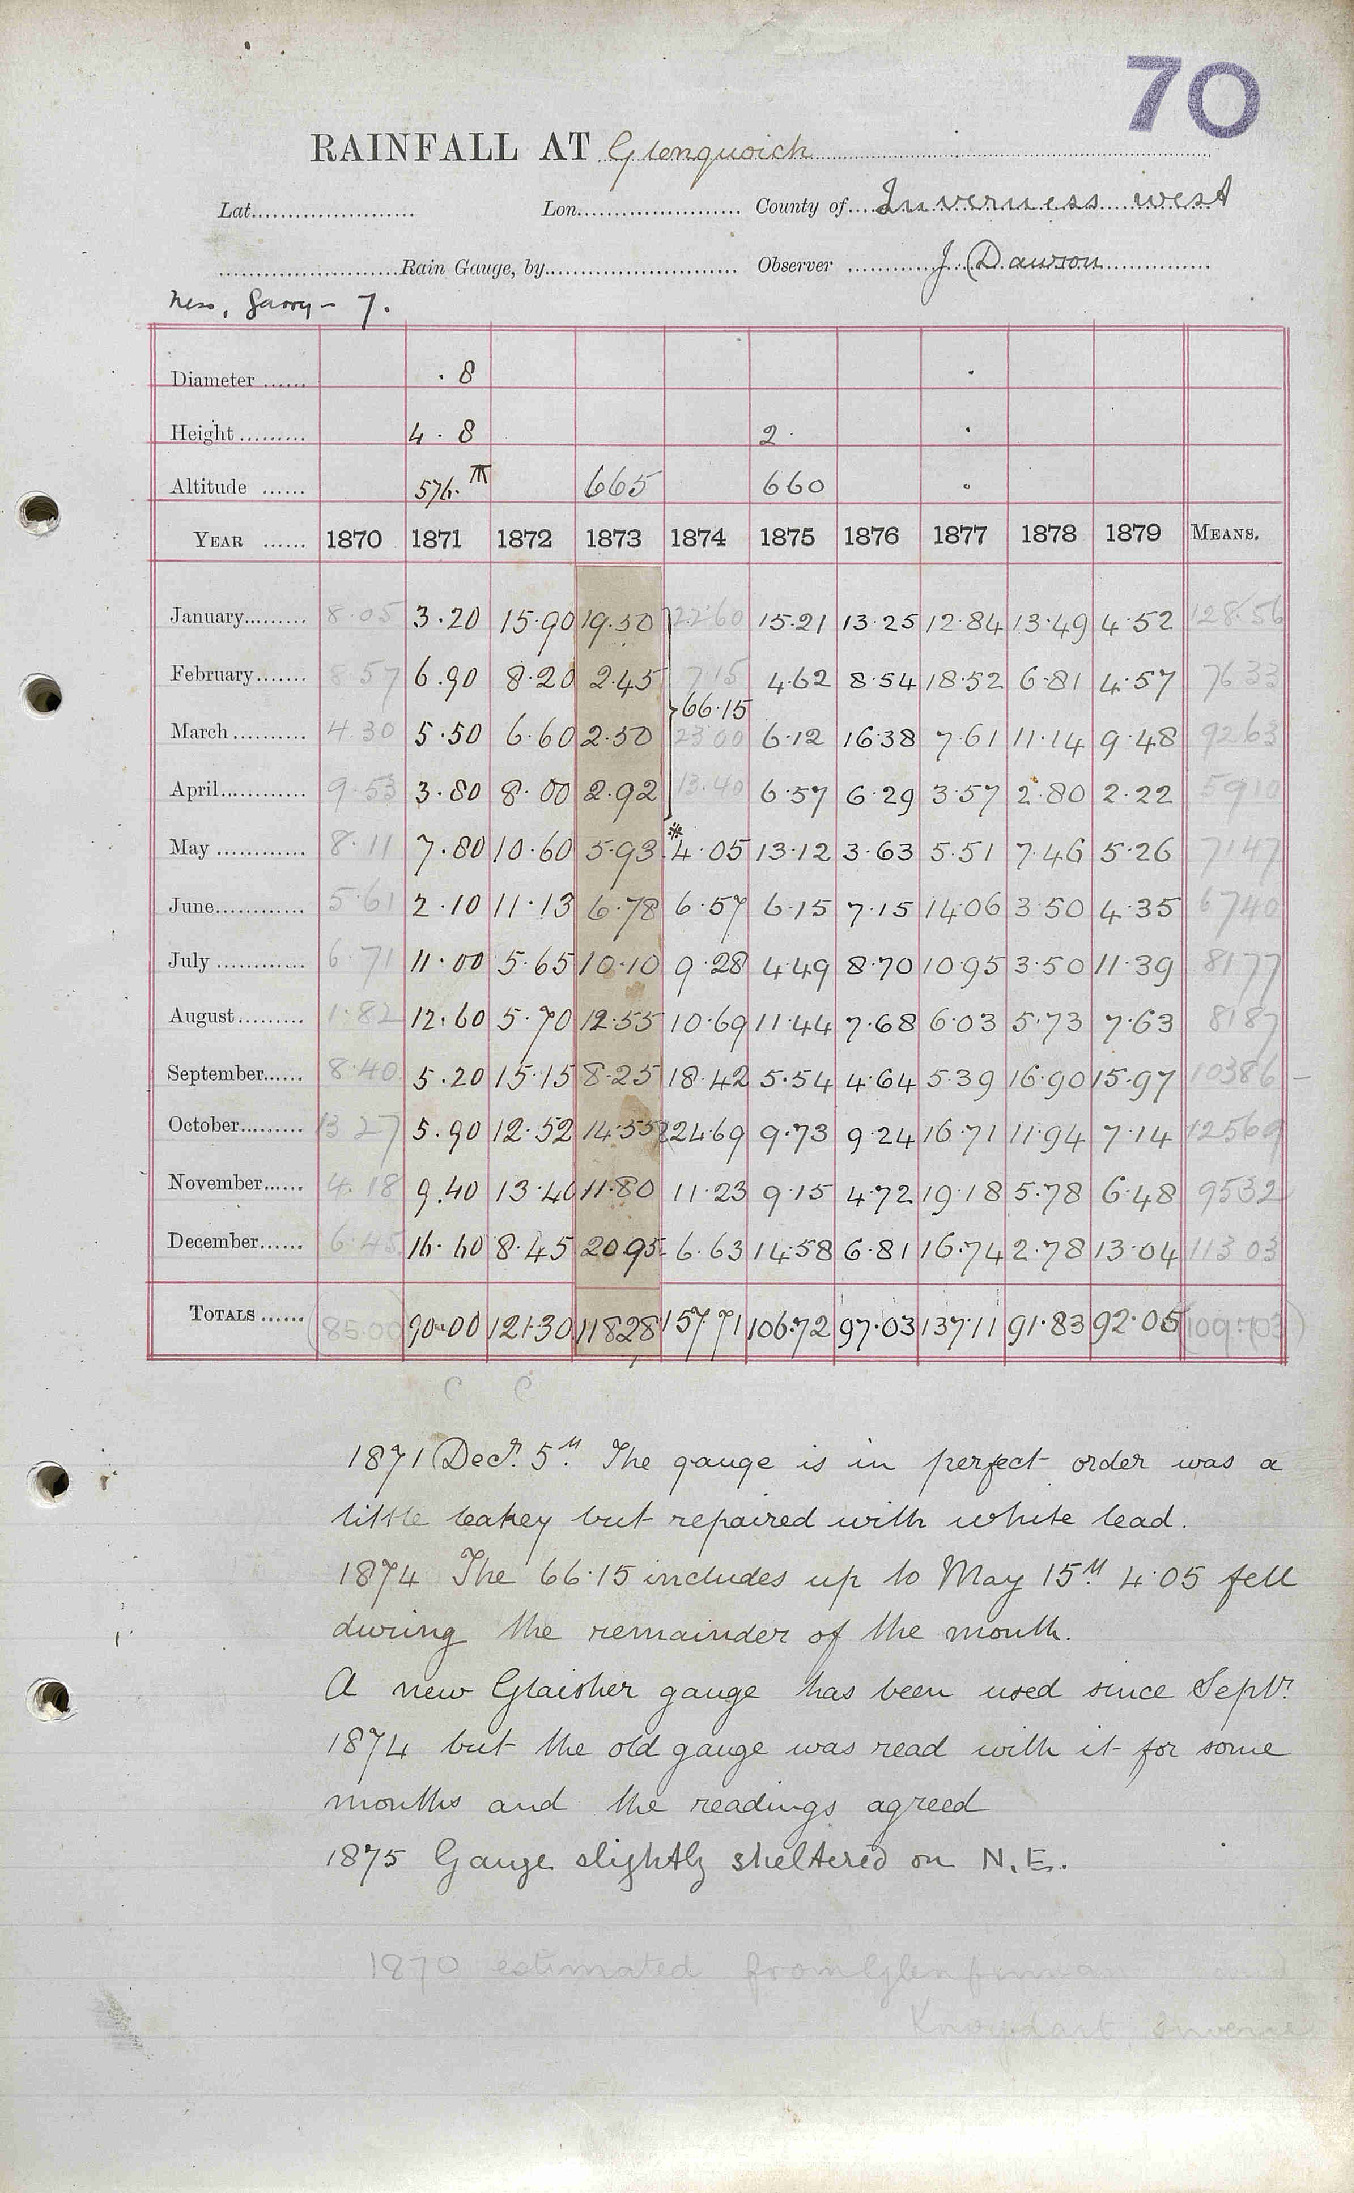 70
RAINFALL AT Glenquoich
Lat. Lon. County of Inverness west
Rain Gauge, by Observer J. Dawson
Ness, Garry - 7.
Diameter ·8
Height 4·8 2·
Altitude 576 T 665 660
YEAR 1870 1871 1872 1873 1874 1875 1876 1877 1878 1879 MEANS.
January 8·05 3·20 15·90 19·50 22·60 15·21 13·25 12·84 13·49 4·52 128·56
February 8·57 6·90 8·20 2·45 7·15 4·62 8·54 18·52 6·81 4·57 7633
66·15
March 4·30 5·50 6·60 2·50 23·00 6·12 16·38 7·61 11·14 9·48 9263
April 9·53 3·80 8·00 2·92 13·40 6·57 6·29 3·57 2·80 2·22 5910
May 8·11 7·80 10·60 5·93 *4·05 13·12 3·63 5·51 7·46 5·26 7147
June 5·61 2·10 11·13 6·78 6·57 6·15 7·15 14·06 3·50 4·35 6740
July 6·71 11·00 5·65 10·10 9·28 4·49 8·70 10·95 3·50 11·39 8177
August 1·82 12·60 5·70 12·55 10·69 11·44 7·68 6·03 5·73 7·63 8187
September 8·40 5·20 15·15 8·25 18·42 5·54 4·64 5·39 16·90 15·97 10386 -
October 13·27 5·90 12·52 14·55 24·69 9·73 9·24 16·71 11·94 7·14 12569
November 4·18 9·40 13·40 11·80 11·23 9·15 4·72 19·18 5·78 6·48 9532
December 6·45 16·60 8·45 20·95 6·63 14·58 6·81 16·74 2·78 13·04 11303
TOTALS (85·00) 90·00 121·30 118·28 157·71 106·72 97·03 137·11 91·83 92·05 (109·703)
C C
1871 Decr. 5th. The gauge is in perfect order was a
little leakey but repaired with white lead.
1874 The 66·15 includes up to May 15th 4·05 fell
during the remainder of the month.
A new Glaisher gauge has been used since Septr.
1874 but the old gauge was read with it for some
months and the readings agreed
1875 Gauge slightly sheltered on N.E.
1870 estimated from Glenfinnan and
Knoydart Inverie